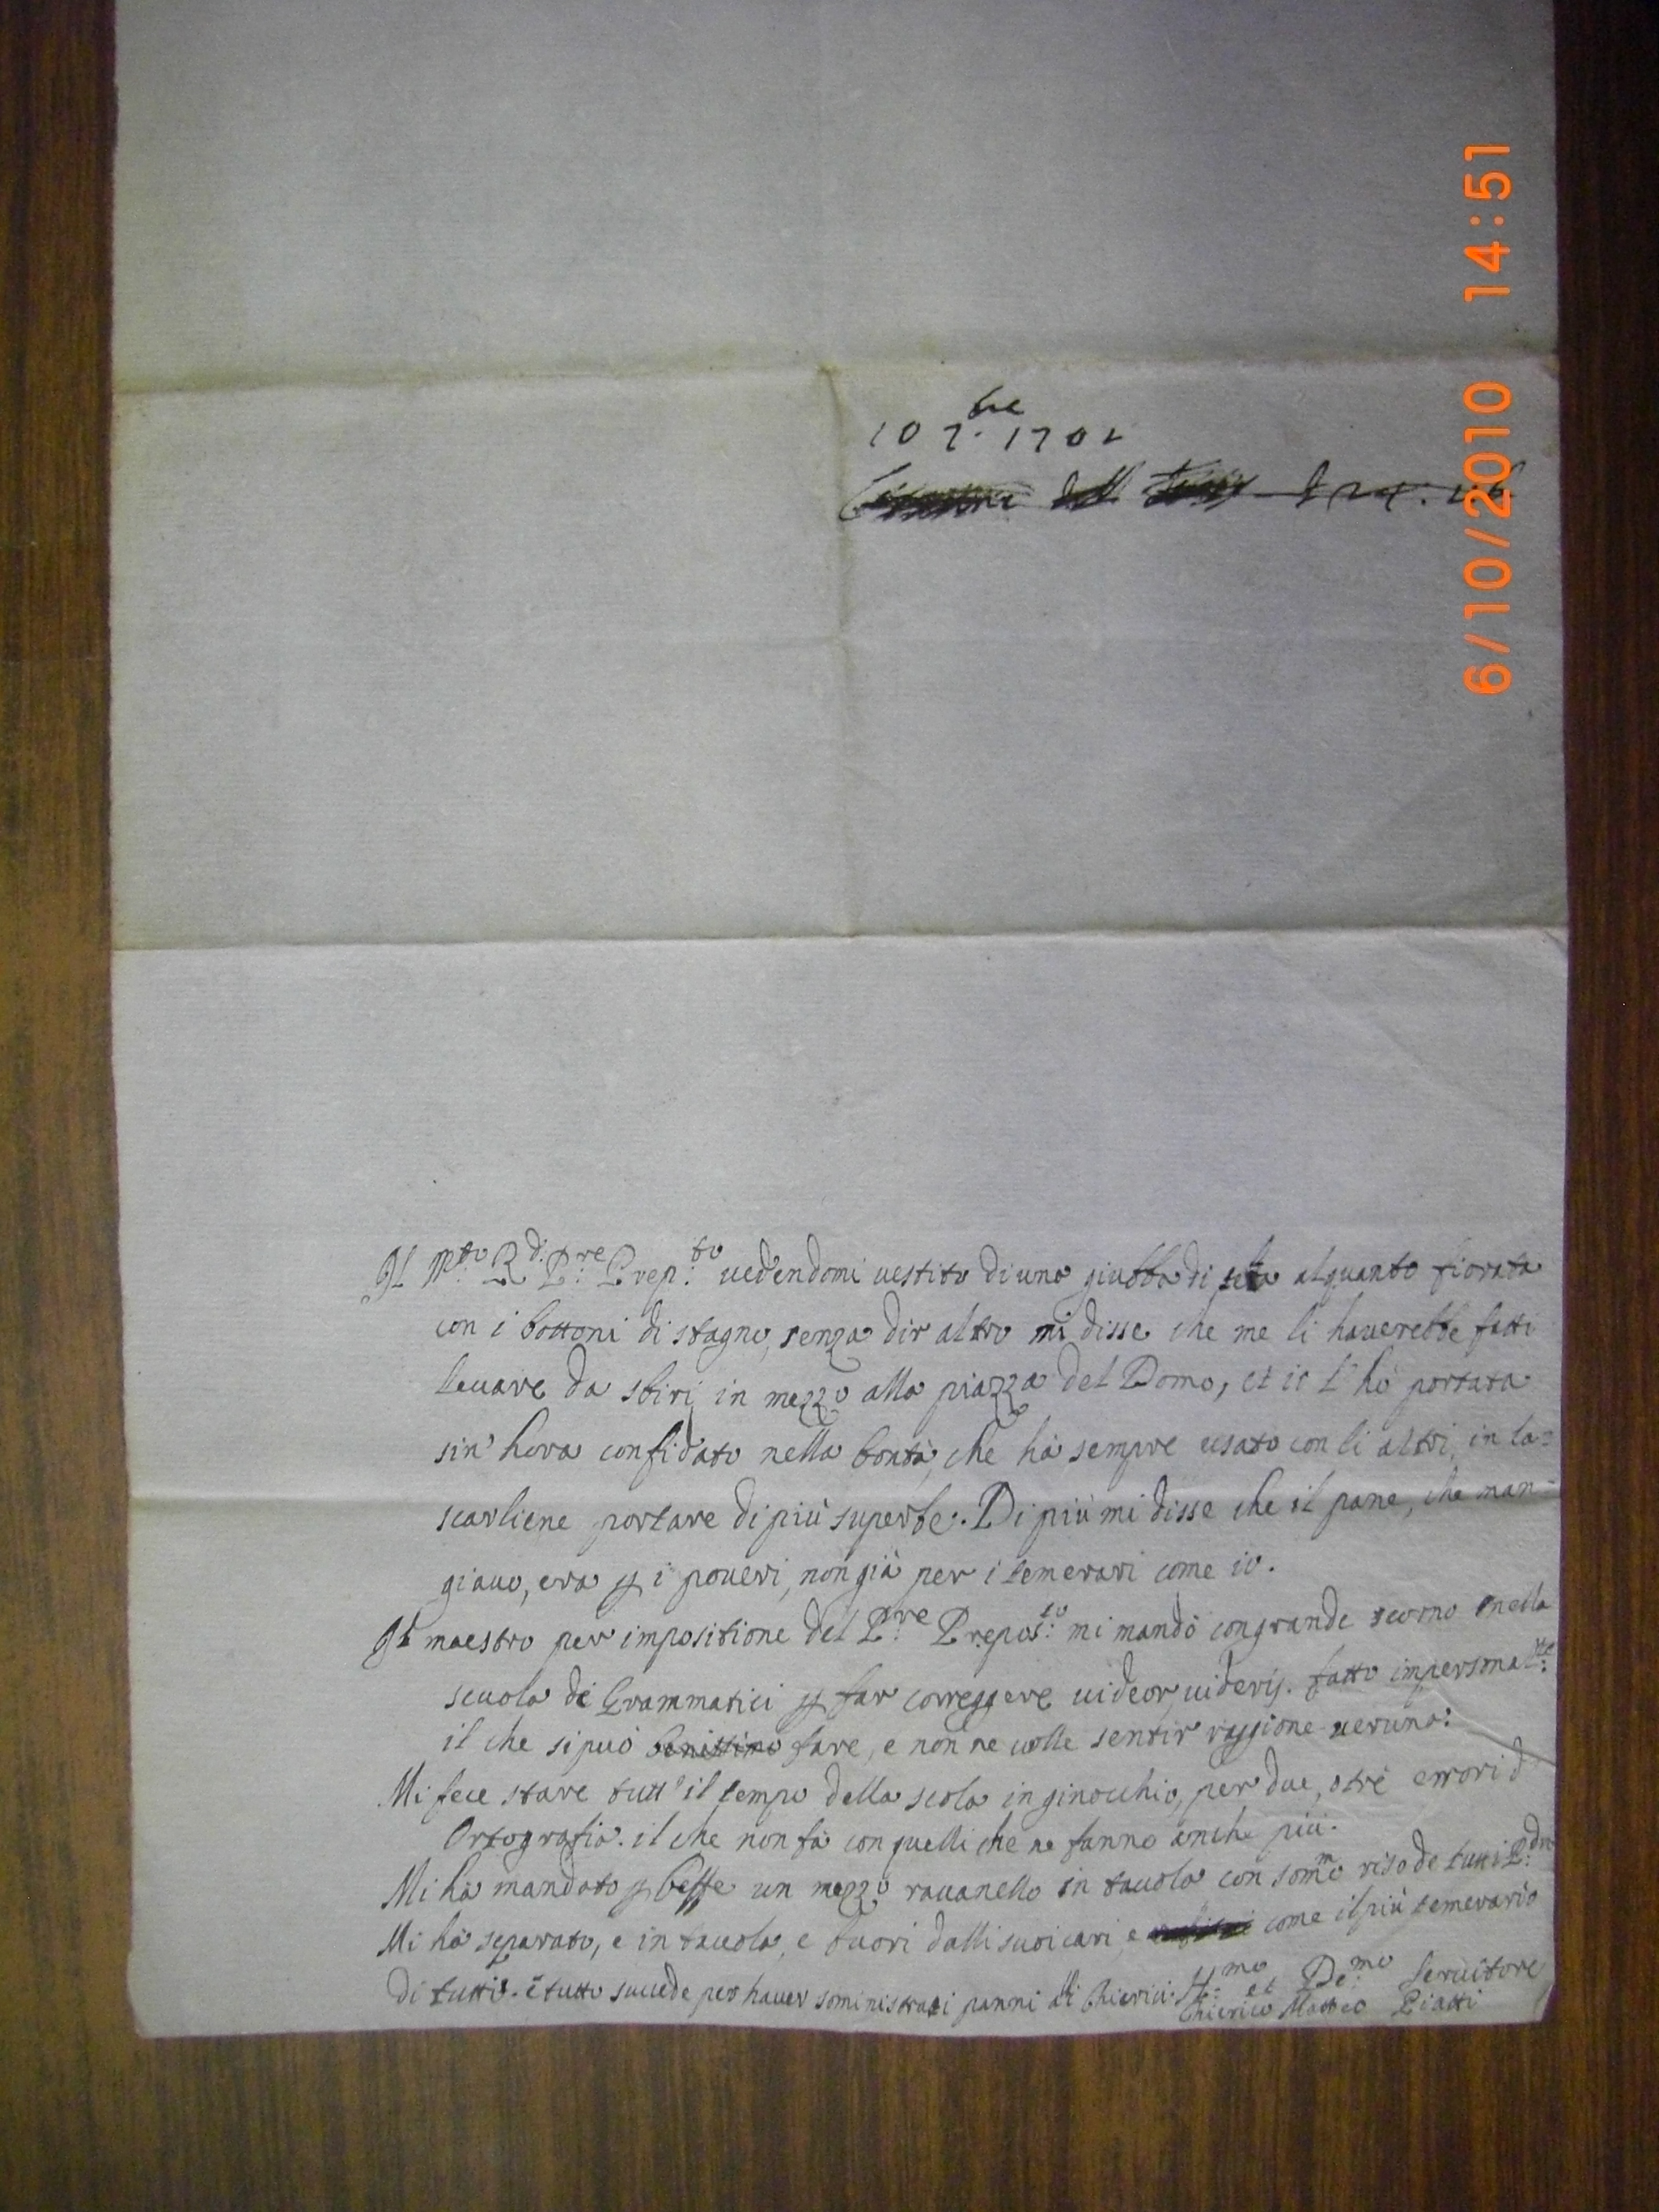 6/10/2010 14:51
10 7.bre 1702
Il M.to R.d P.re Prep.to uedendomi uestito di una giubba di seta alquanto fiorata
con i bottoni di stagno, senza dir altro mi disse che me li hauerebbe fatti
leuare da sbiri in mezzo alla piazza del Domo, et io l'hò portata
sin'hora confidato nella bontà, che hà sempre usato con li altri, in la=
scarliene portare di più superbe. Di più mi disse che il pane, che man=
giauo, era p i poueri, non già per i temerari come io.
Il maestro per impositione del P.re Prepos.to mi mandò con grande scorno nella
scuola de Grammatici p far correggere uideor, uideris. fatto impersonal.te
il che si può benissimo fare, e non ne uolle sentir raggione ueruna:
Mi fece stare tutt'il tempo della scola in ginocchio, per due, o trè errori d
Ortografia. il che non fà con quelli che ne fanno anche più.
Mi hà mandato p beffe un mezzo rauanello in tauola con som.mo riso de tutti
Mi hà separato, e in tauola, e fuori dalli suoi cari, e come il più temerario
di tutti. è tutto succede per hauer somministrati panni alli Chierici. H.mo et De.mo Seruitore
Chierico Matteo Piatti